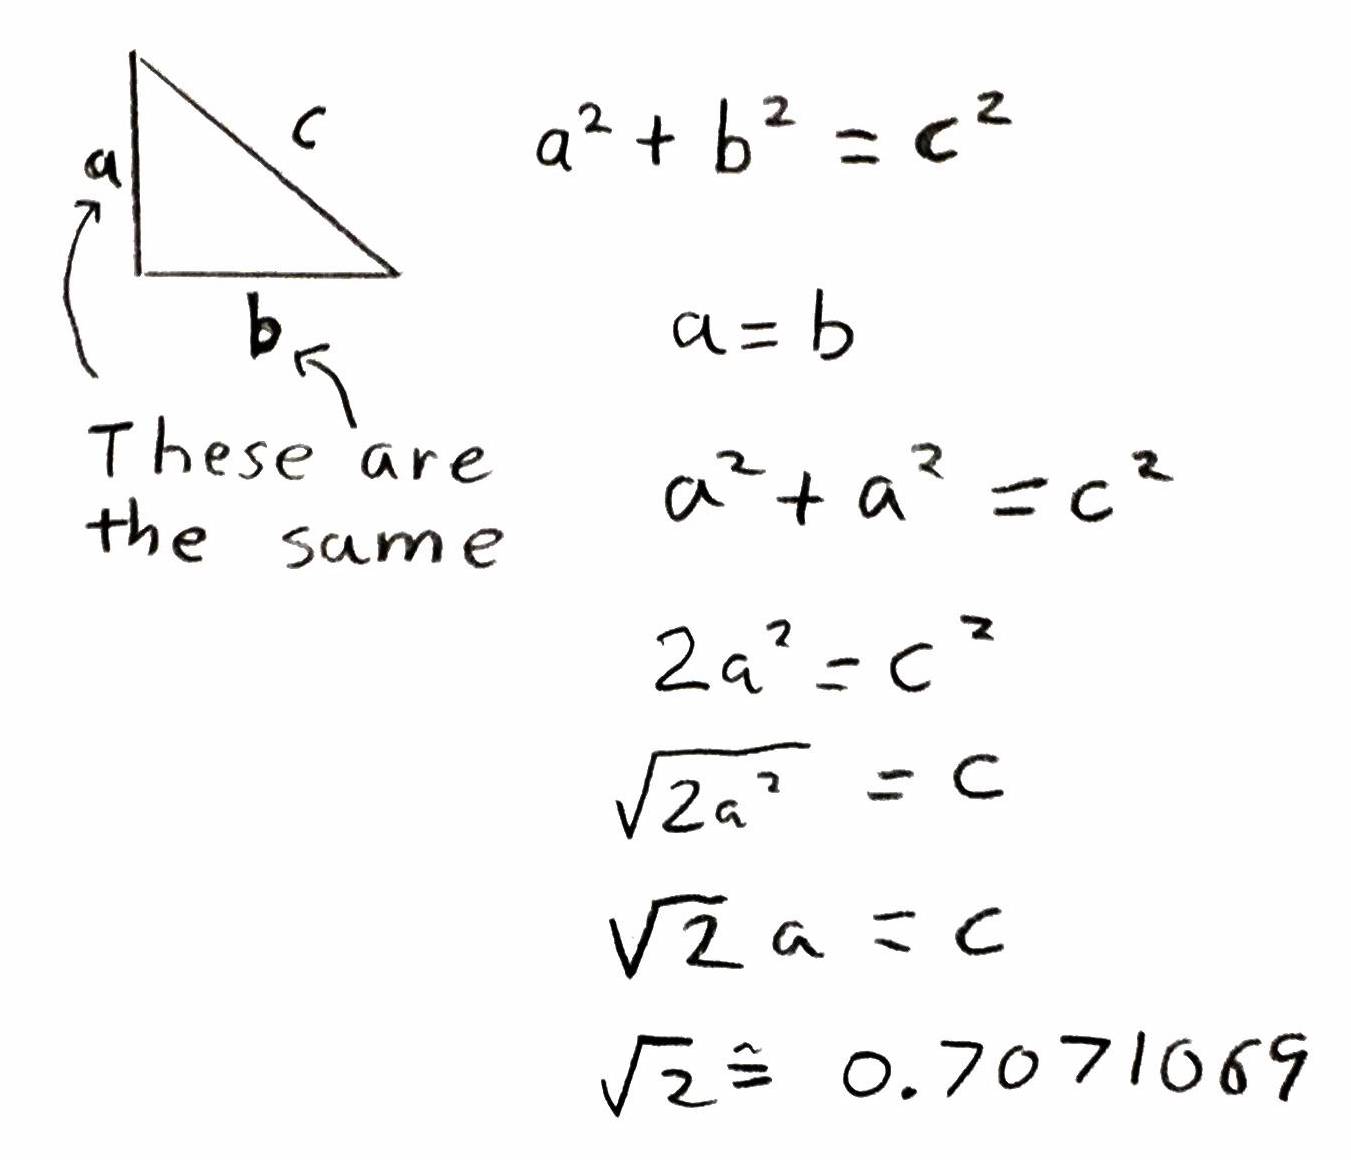 a
c
b
These are
the same
a² + b² = c²
a = b
a² + a² = c²
2a² = c²
√2a² = c
√2 a = c
√2 ≅ 0.7071069